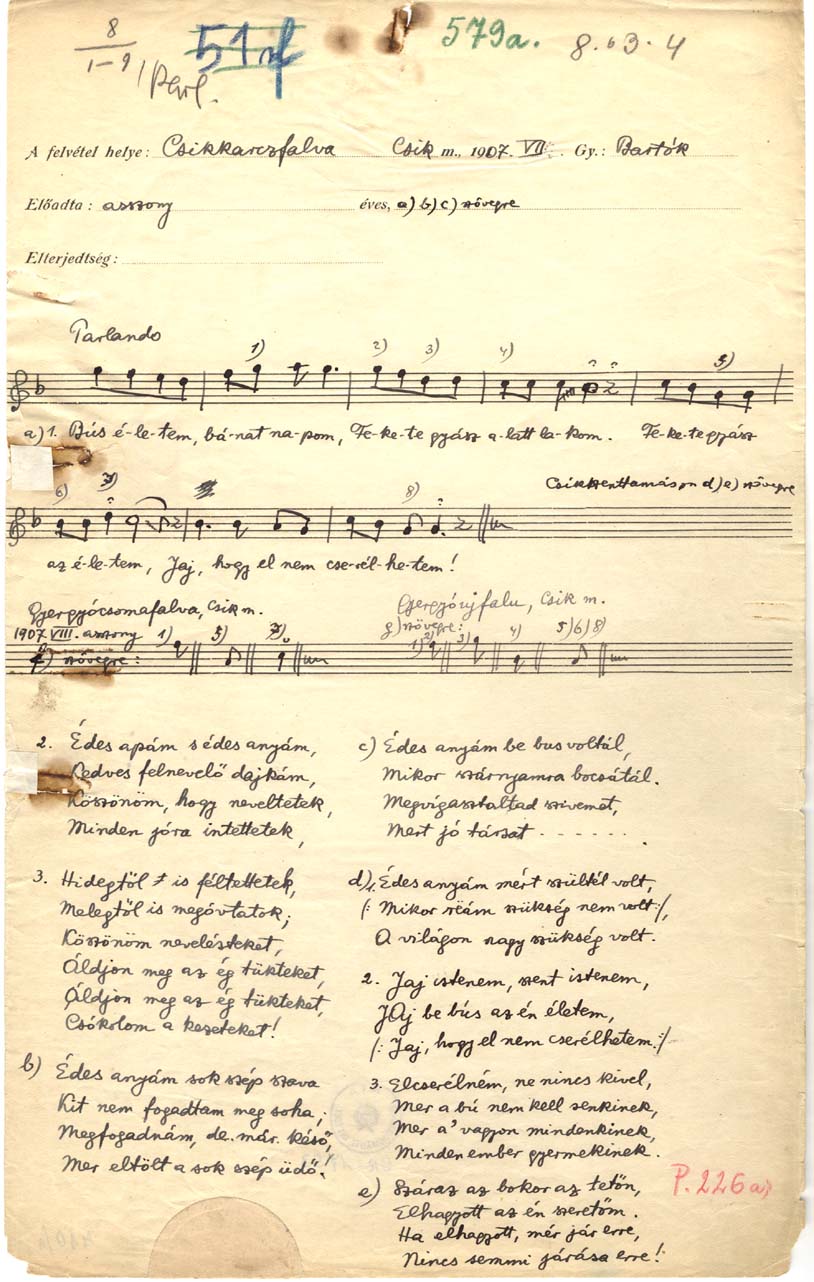 8
1-9
51
579a.
8.63.4
A felvétel helye: Csikkarczfalva Csik m., 1907. VII. Gy.: Bartók
Előadta: asszony éves, a) b) c) szövegre
Elterjedtség:
Parlando
1) 2) 3) 4) 5)
a) 1. Bús é-le-tem, bá-nat na-pom, Fe-ke-te gyász a-latt la-kom. Fe-ke-te gyász
Csikszenttamáson d) e) szövegre
6) 7) 8)
az é-le-tem, Jaj, hogy el nem cse-rél-he-tem!
Gyergyócsomafalva, Csik m.
1907. VIII. asszony 1) 5) 7)
f) szövegre:
Gyergyóújfalu, Csik m.
g) szövegre:
1) 2) 3) 4) 5) 6) 8)
2. Édes apám s édes anyám,
Kedves felnevelő dajkám,
Köszönöm, hogy neveltetek,
Minden jóra intettetek,
3. Hidegtől is féltettetek,
Melegtől is megóvtatok;
Köszönöm nevelésteket,
Áldjon meg az ég tükteket,
Áldjon meg az ég tükteket,
Csókolom a kezeteket!
b) Édes anyám sok szép szava
Kit nem fogadtam meg soha,
Megfogadnám, de már késő,
Mer eltölt a sok szép üdő!
c) Édes anyám be bus voltál,
Mikor szárnyamra bocsátál.
Megvigasztaltad szivemet,
Mert jó társat - - - - - - .
d) 1. Édes anyám mért szültél volt,
/: Mikor rëám szükség nem volt :/,
A világon nagy szükség volt.
2. Jaj istenem, szent istenem,
Jaj be bús az én életem,
/: Jaj, hogy el nem cserélhetem. :/
3. Elcserélném, ne nincs kivel,
Mer a bú nem kell senkinek,
Mer a' vagyon mindenkinek,
Minden ember gyermekinek.
e) Száraz az bokor az tetőn,
Elhagyott az én szeretőm.
Ha elhagyott, mér jár erre,
Nincs semmi járása erre!
P. 226a)